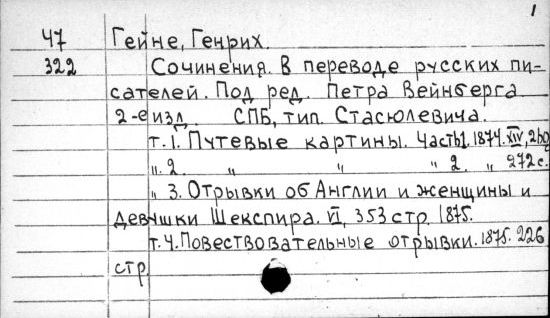 1
47 Гейне, Генрих.
322 Сочинения. В переводе русских пи-
сателей. Под ред. Петра Вейнберга
2-е изд. СПБ, тип. Стасюлевича.
т. 1. Путевые картины. Часть 1. 1874. XIV, 260
" 2. " " " 2. " 272 с.
" 3. Отрывки об Англии и женщины и
девушки Шекспира. VI, 353 стр. 1875.
т. 4. Повествовательные отрывки. 1875. 226
стр